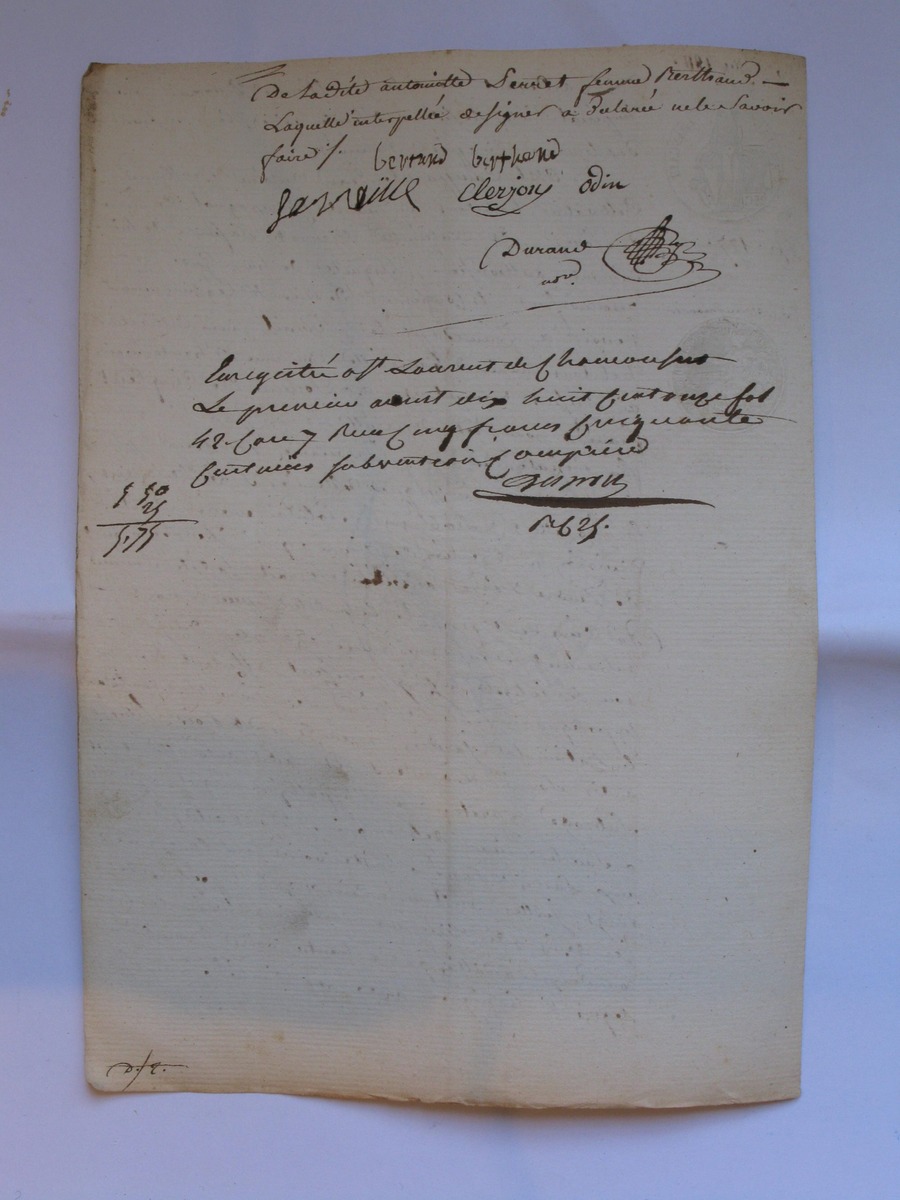 De Ladité antoinette Perret femme Berthaud —
Laquelle interpellée designer a déclaré nele Savoir
faire /.
bertand berthand
clerjon odin
Durand
nore
Enregistré a St Laurent de Chamousset
Le premier aoust dix huit Cent onze fol
42 Case 7 Reçu Cinq francs Cinquante
Centimes subvention Comprise
5 50
25
5.75
25.